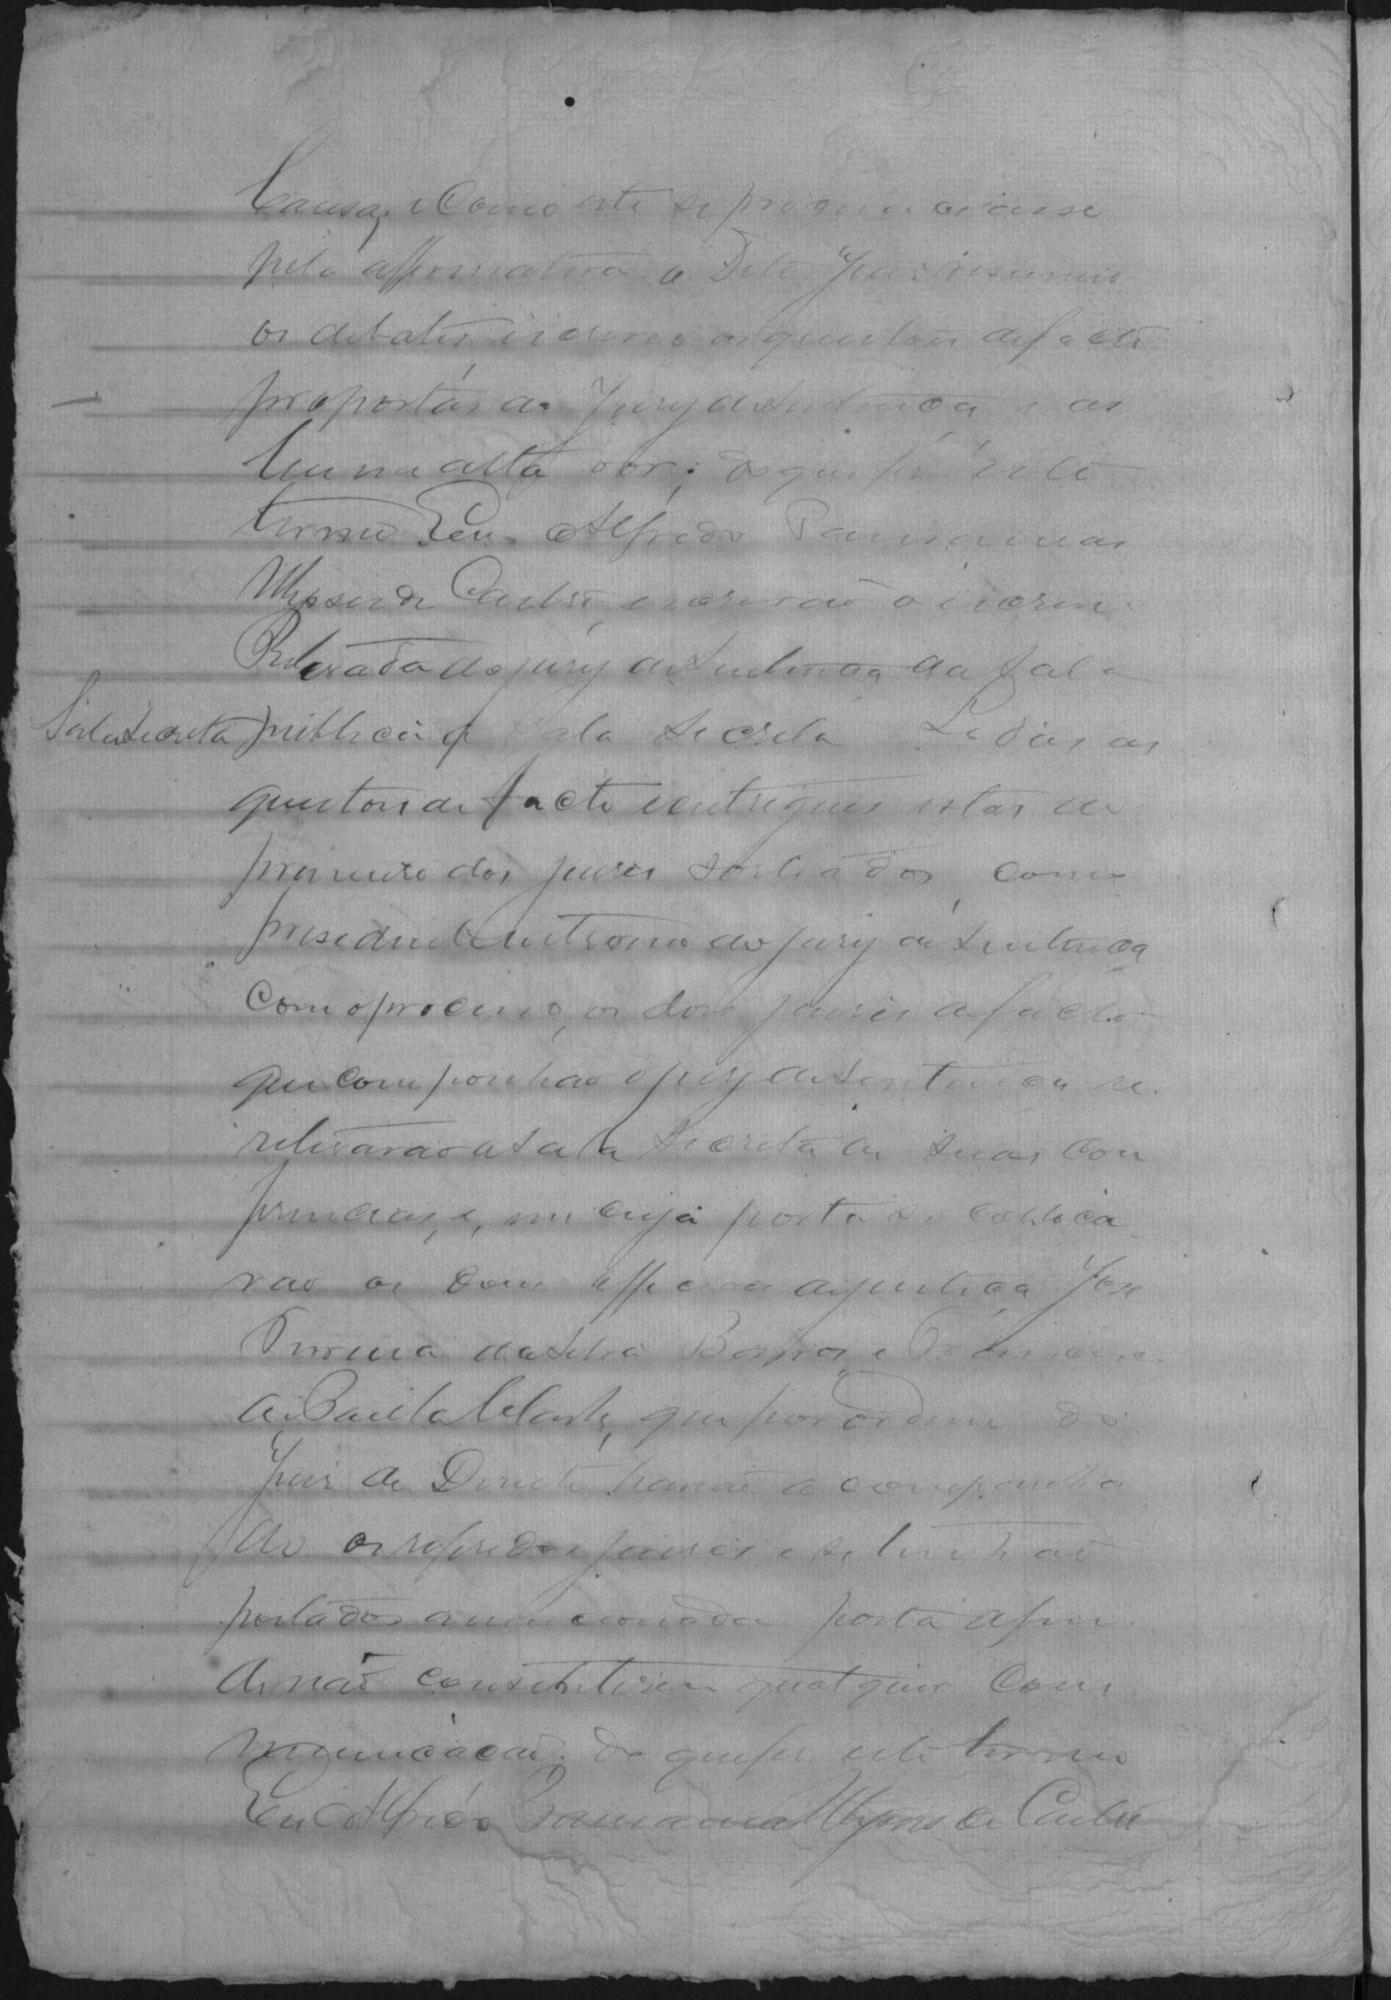 Causa, e como este se pronunciasse
pela affirmativa o Dito Juiz resumio
os debates escreveo as questões de facto
propostas ao Jury de Sentença e as
leu na alta vos; do que fiz este
termo Eu Alfredo
Ulysses de Castro, escrivão o escrevi.
Retirada do jury de Sentença da Sala
Sala Secreta publica a Sala Secreta Lidas as
questões de facto e entregues estas ao
primeiro dos juizes sorteados como
presidente interino do jury de Sentença
com o processo, os dose juizes de facto
que componhão o jury de Sentença se
retirarão a Sala Secreta de suas con
ferencias, e, em cuja porta se colloca
rão os dous officiaes de justiça José
Pereira da Silva Barros e
de Paula que por ordem do
Juiz de Direito havião acompanha
do os referidos juizes e se tinhão
postados a mencionada porta afim
de não consentirem qualquer com
municação. do que fiz este termo
Eu Alfredo Ulysses de Castro